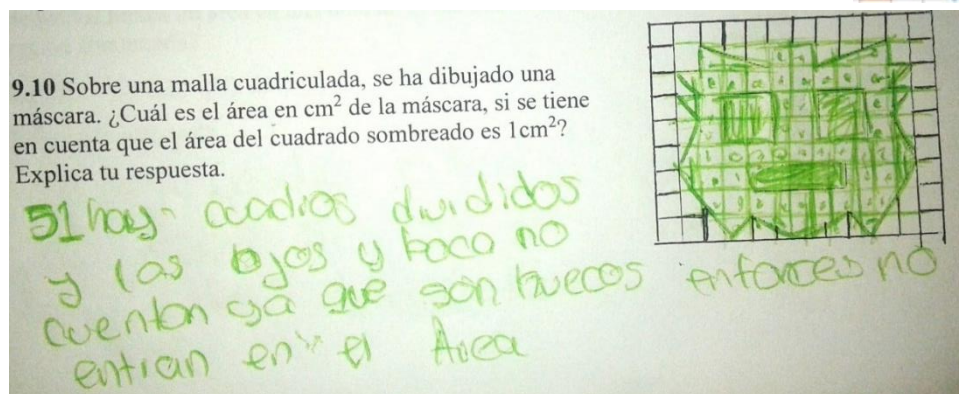 9.10 Sobre una malla cuadriculada, se ha dibujado una
máscara. ¿Cuál es el área en cm² de la máscara, si se tiene
en cuenta que el área del cuadrado sombreado es 1cm²?
Explica tu respuesta.
51 hay cuadros divididos
y las ojos y boca no
cuenton ya que son huecos entonces no
entran en el Área